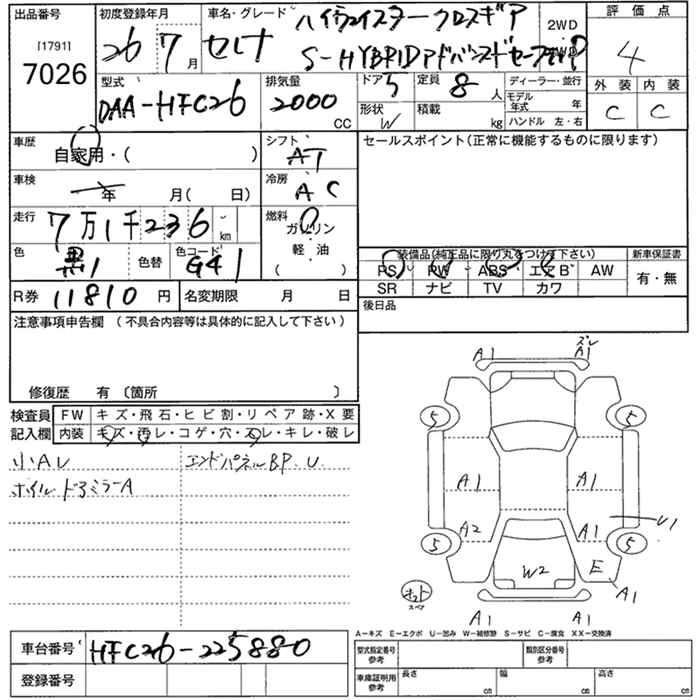 出品番号
[1791]
7026
初度登録年月
26 7月
車名・グレード
セレナ
ハイウェイスター クロスギア
S-HYBRID アドバンスドセーフティP
2WD
評価点
4
外装 内装
C C
型式
DAA-HFC26
排気量
2000
CC
ドア 5
定員 8人
ディーラー・並行
モデル年式 年
ハンドル 左・右
形状 W
積載 kg
車歴
自家用・( )
シフト
AT
セールスポイント(正常に機能するものに限ります)
車検
年 月( 日)
冷房
AC
走行
7万1千236km
燃料
ガソリン
軽油
( )
色
黒1
色替
色コード
G41
装備品(純正品に限り丸をつけて下さい)
新車保証書
PS PW ABS エアB AW
有・無
SR ナビ TV カワ
R券 11810円
名変期限 月 日
後日品
注意事項申告欄 (不具合内容等は具体的に記入して下さい)
修復歴 有 〔箇所 〕
検査員記入欄
FW キズ・飛石・ヒビ割・リペア跡・X要
内装 キズ・汚レ・コゲ・穴・スレ・キレ・破レ
小AU
エンドパネルBP.U
ホイルドアミラーA
A1 ズレ A1
5 5
A1 A1
A2 A1 U1
5 5
W2 E
A1
スペア
A1 A1
A-キズ E-エクボ U-凹み W-補修跡 S-サビ C-腐食 XX-交換済
車台番号 HFC26-225880
登録番号
型式指定番号参考
類別区分番号参考
車庫証明用参考
長さ cm 幅 cm 高さ cm